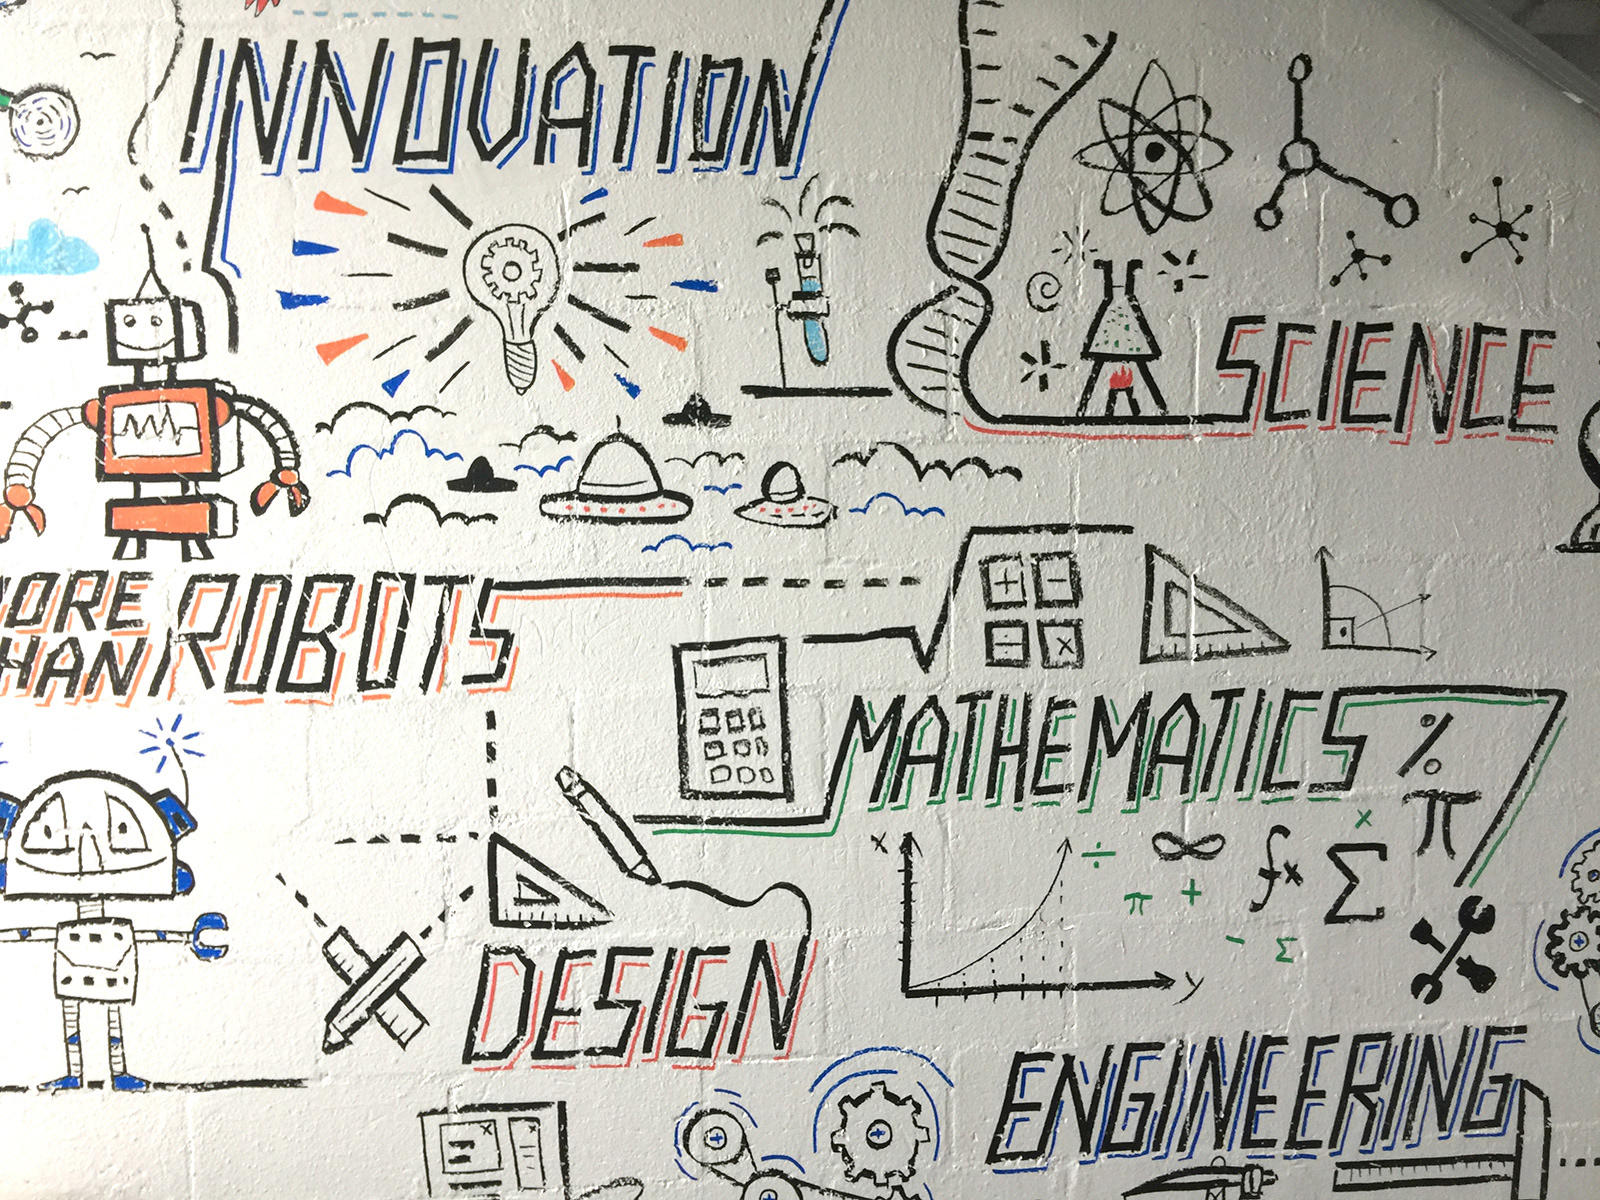 INNOVATION
SCIENCE
ORE
HAN ROBOTS
+ -
- x
MATHEMATICS
%
π
x
x
÷ ∞ fx Σ
π +
- Σ
y
DESIGN
ENGINEERING